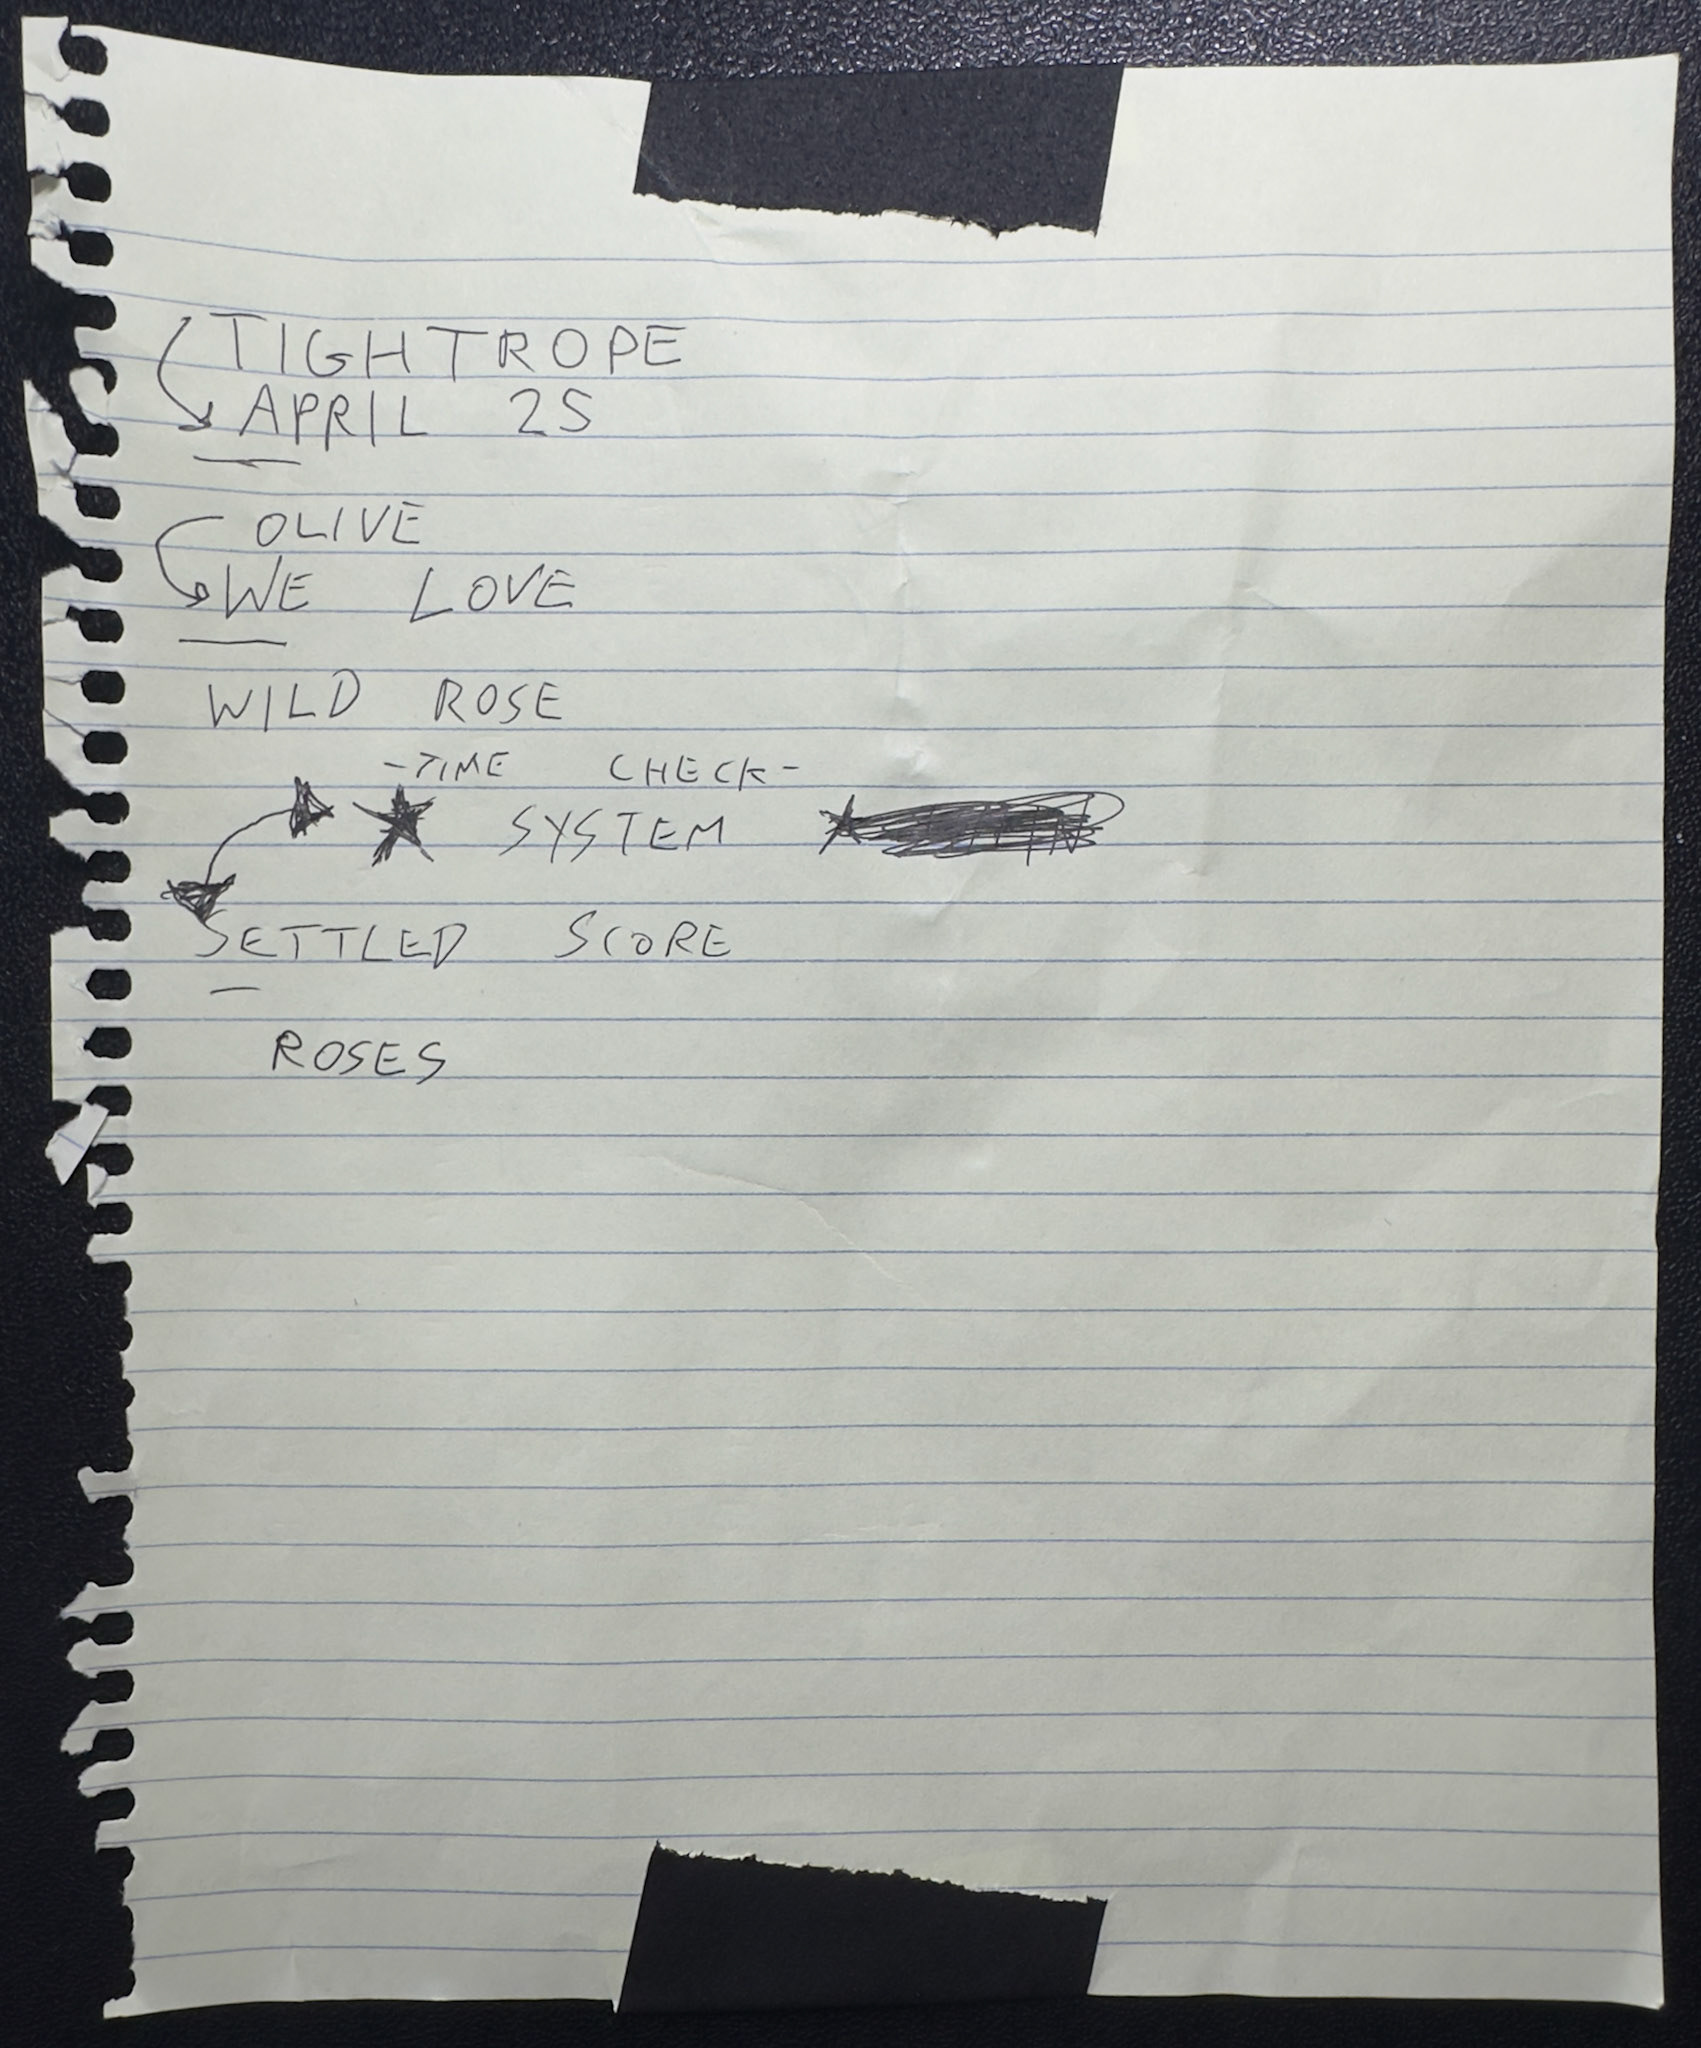 TIGHTROPE
APRIL 25
OLIVE
WE LOVE
WILD ROSE
-TIME CHECK-
SYSTEM
SETTLED SCORE
ROSES